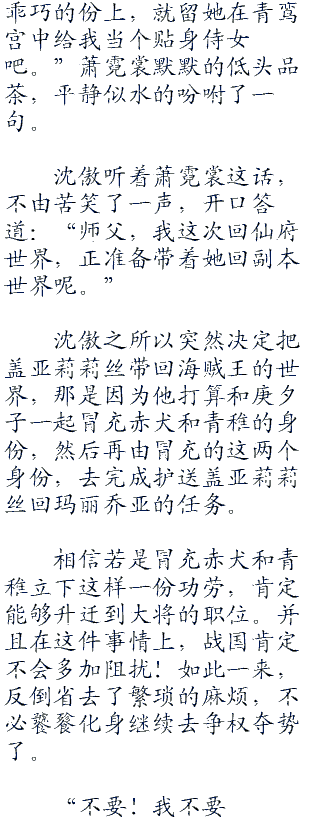 乖巧的份上，就留她在青鸾
宫中给我当个贴身侍女
吧。”萧霓裳默默的低头品
茶，平静似水的吩咐了一
句。
沈傲听着萧霓裳这话，
不由苦笑了一声，开口答
道：“师父，我这次回仙府
世界，正准备带着她回副本
世界呢。”
沈傲之所以突然决定把
盖亚莉莉丝带回海贼王的世
界，那是因为他打算和庚夕
子一起冒充赤犬和青稚的身
份，然后再由冒充的这两个
身份，去完成护送盖亚莉莉
丝回玛丽乔亚的任务。
相信若是冒充赤犬和青
稚立下这样一份功劳，肯定
能够升迁到大将的职位。并
且在这件事情上，战国肯定
不会多加阻扰！如此一来，
反倒省去了繁琐的麻烦，不
必饕餮化身继续去争权夺势
了。
“不要！我不要